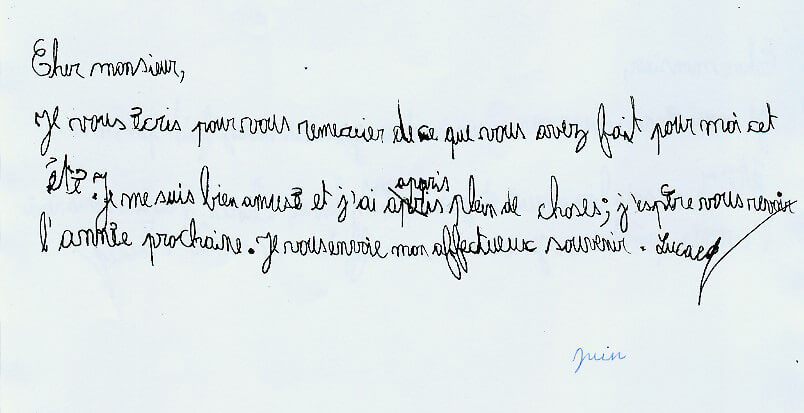 Cher monsieur,
Je vous écris pour vous remercier de ce que vous avez fait pour moi cet
été. Je me suis bien amusé et j'ai apris plein de choses; j'espère vous revoir
l'année prochaine. Je vous envoie mon affectueux souvenir.
juin